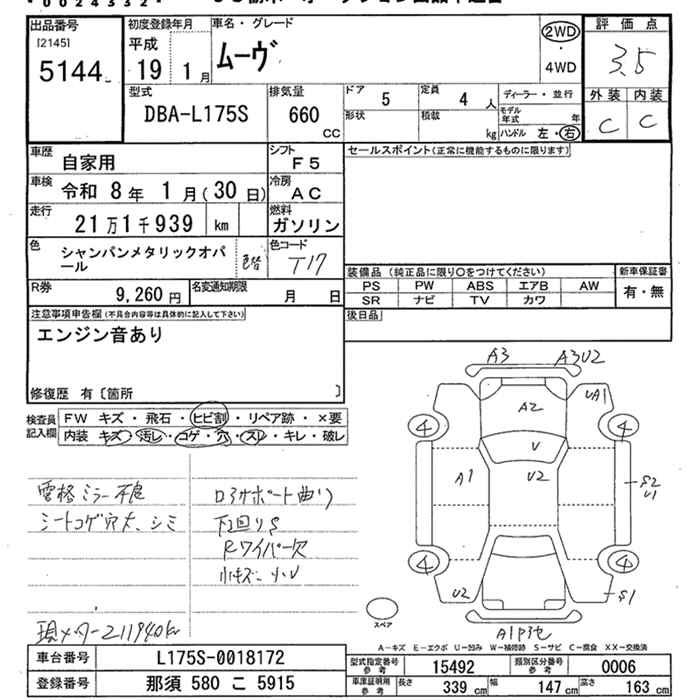 出品番号 初度登録年月 車名・グレード 2WD 評価点
[2145] 平成 ムーヴ ・ 3.5
5144 19 1月 4WD
型式 排気量 ドア 5 定員 4人 ディーラー・並行 外装 内装
DBA-L175S 660 CC 形状 積載 kg モデル年式 年 C C
ハンドル 左・右
車歴 自家用 シフト F5 セールスポイント(正常に機能するものに限ります)
車検 令和 8年 1月(30日) 冷房 AC
走行 21万1千939 km 燃料 ガソリン
色 シャンパンメタリックオパール 色替 色コード T17
装備品(純正品に限り○をつけてください) 新車保証書
R券 9,260円 名変通知期限 月 日 PS PW ABS エアB AW 有・無
SR ナビ TV カワ
注意事項申告欄(不具合内容等は具体的に記入して下さい) 後日品
エンジン音あり
修復歴 有〔箇所 〕
検査員記入欄 FW キズ・飛石・ヒビ割・リペア跡・×要
内装 キズ・汚レ・コゲ・穴・スレ・キレ・破レ
A3 A3U2
A2 UA1
4 4
V
A1 U2 S2
U1
4 4
U2 S1
スペア
シートコゲ穴大、シミ 下回りS
Rワイパー欠
小キズ、小U
現メーター211940km
A-キズ E-エクボ U-凹み W-補修跡 S-サビ C-腐食 XX-交換済
車台番号 L175S-0018172 型式指定番号 参考 15492 類別区分番号 参考 0006
登録番号 那須 580 こ 5915 車庫証明用 参考 長さ 339cm 幅 147cm 高さ 163cm